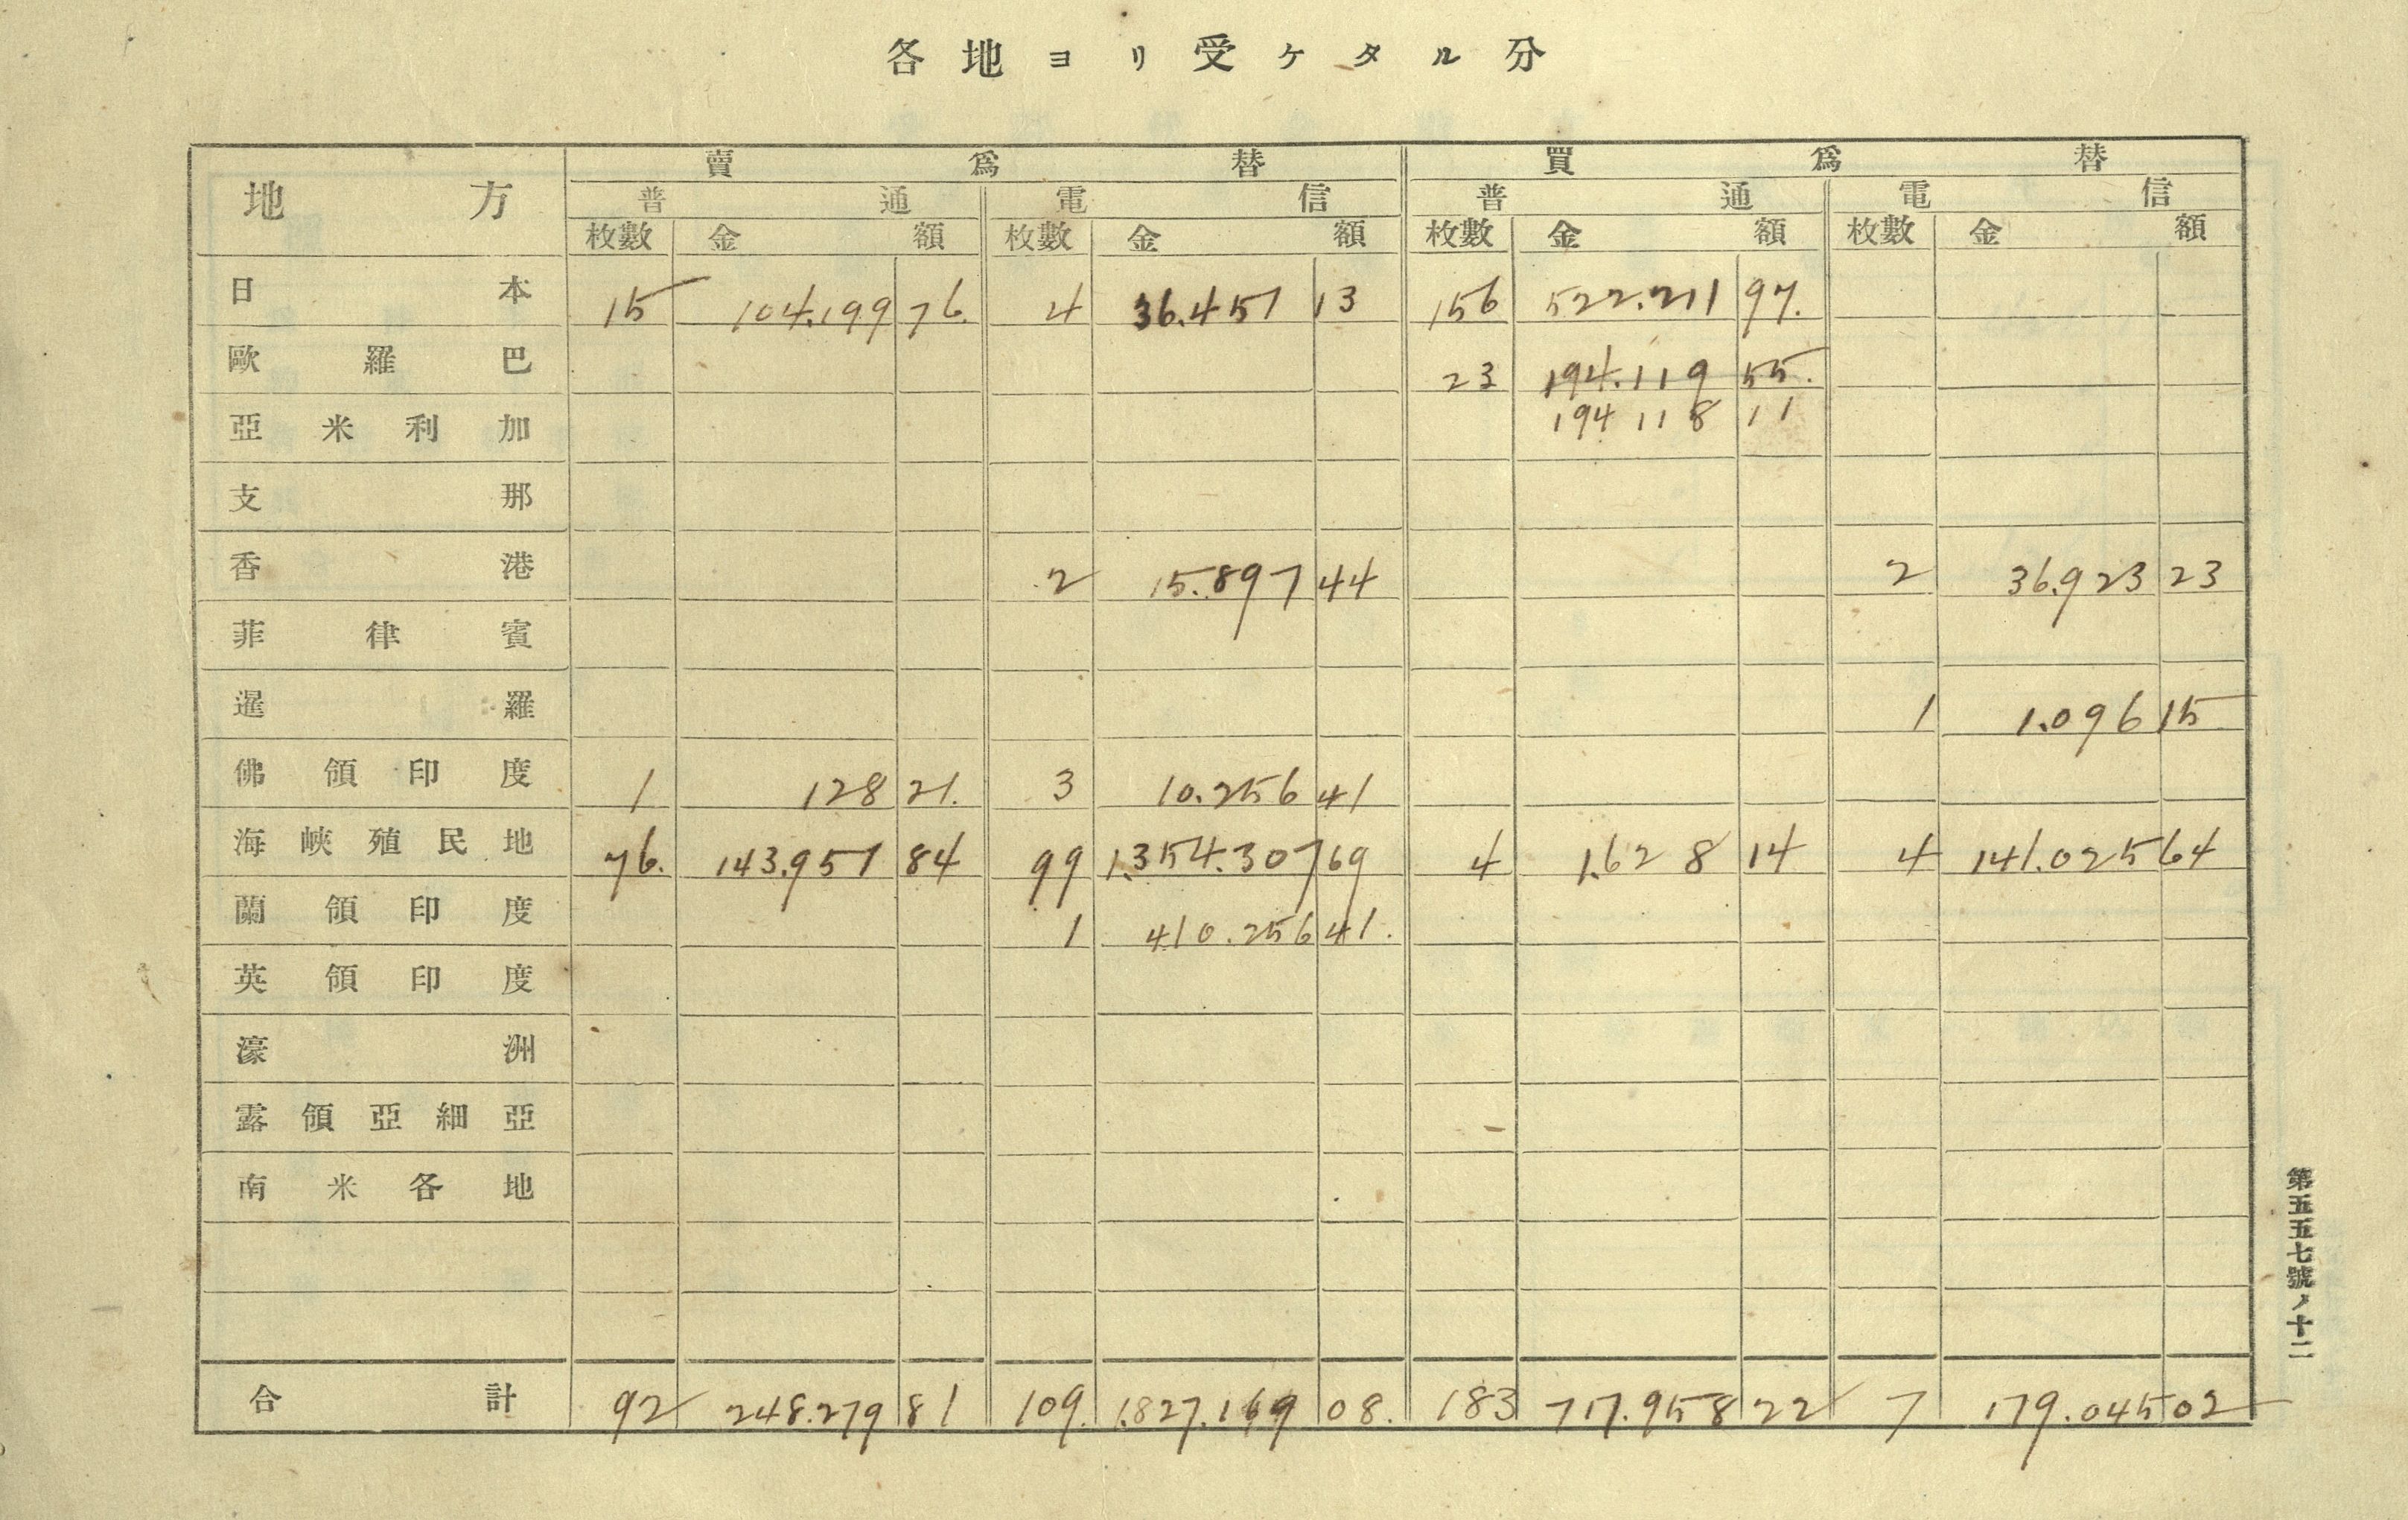 各地ヨリ受ケタル分
地方 賣爲替 買爲替
普通 電信 普通 電信
枚數 金額 枚數 金額 枚數 金額 枚數 金額
日本 15 104.199 76. 4 36.451 13 156 522.211 97.
歐羅巴 23 194.119 55.
亞米利加 194 118 11
支那
香港 2 15.897 44 2 36.923 23
菲律賓
暹羅 1 1.096 15
佛領印度 1 128 21. 3 10.256 41
海峽殖民地 76. 143.951 84 99 1.354.307 69 4 1.628 14 4 141.025 64
蘭領印度 1 410.256 41.
英領印度
濠洲
露領亞細亞
南米各地
合計 92 248.279 81 109. 1.827.169 08. 183 717.958 22 7 179.045 02
第五五七號ノ十二